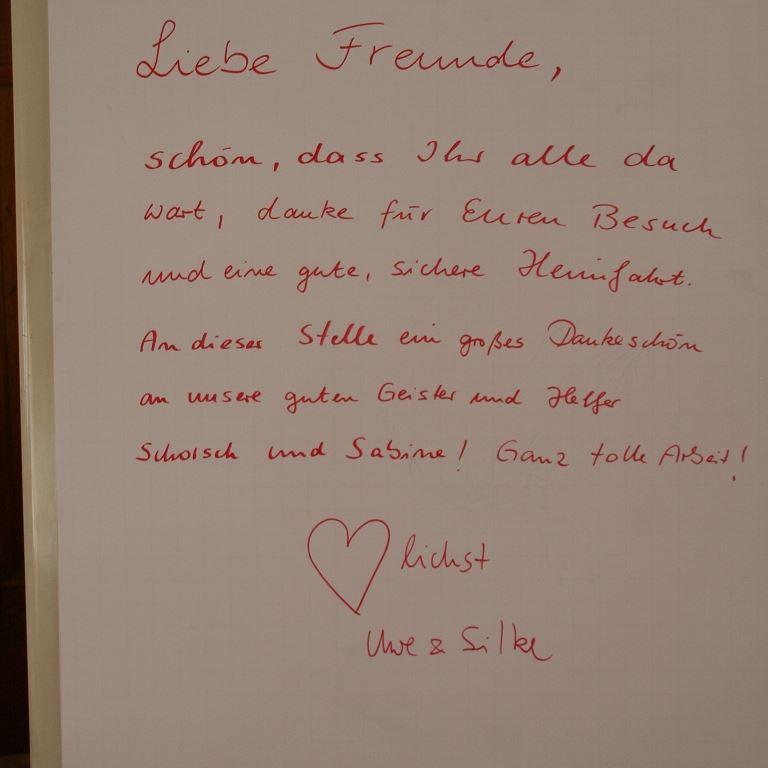 Liebe Freunde,
schön, dass Ihr alle da
wart, danke für Euren Besuch
und eine gute, sichere Heimfahrt.
An dieser Stelle ein großes Dankeschön
an unsere guten Geister und Helfer
Schorsch und Sabine! Ganz tolle Arbeit!
♡lichst
Uwe & Silke